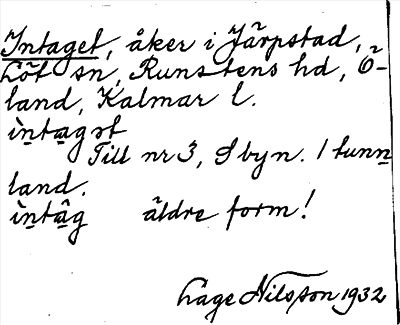 Intaget, åker i Järpstad,
Löt sn, Runstens hd, Ö-
land, Kalmar l.
ìntagət
Till nr 3, S byn. 1 tunn
land.
ìntâg äldre form!
Låge Nilsson 1932